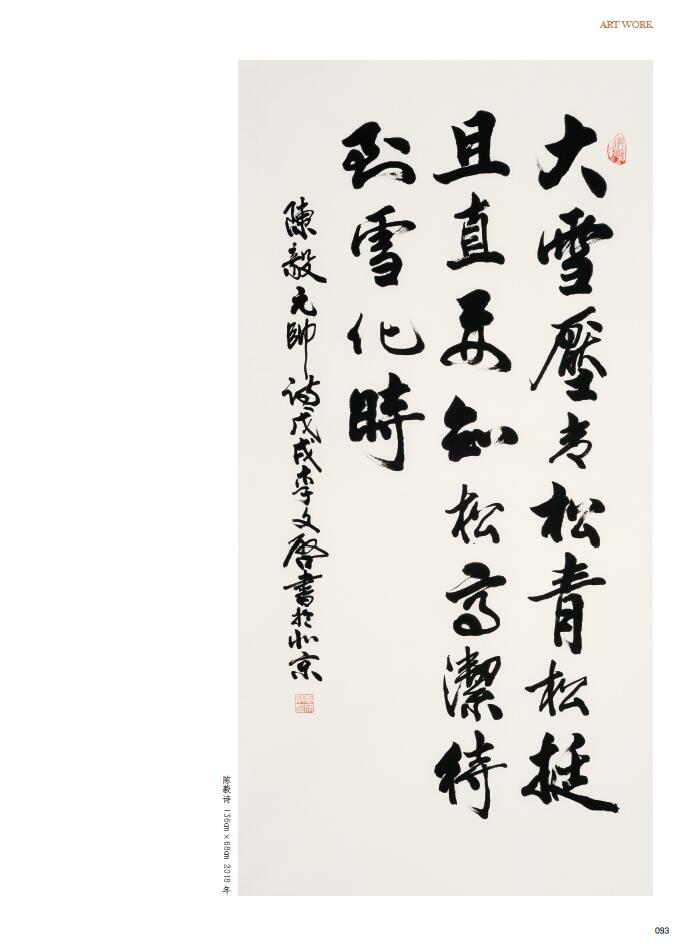 ART WORK
大雪壓青松青松挺
且直要知松高潔待
到雪化時
陳毅元帥詩戊戌李文啓書於北京
陈毅诗 136cm×68cm 2018 年
093